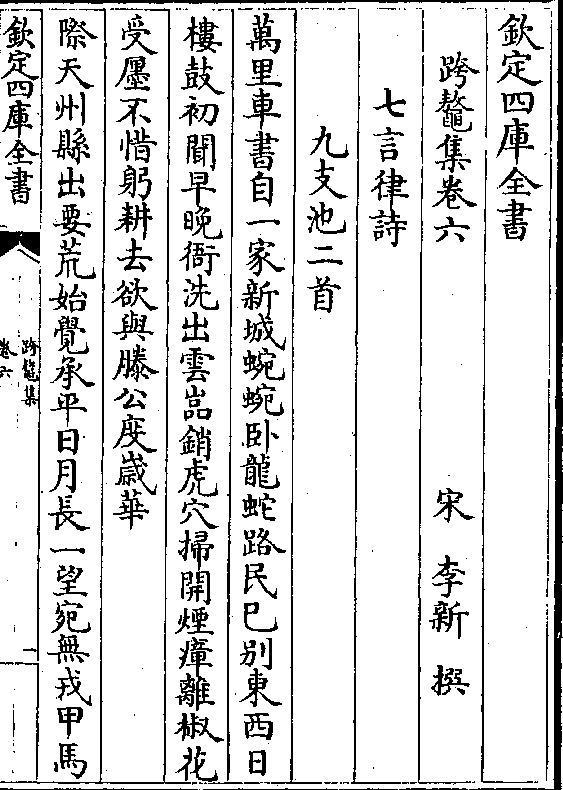 欽定四庫全書
跨鼇集卷六
宋 李新 撰
七言律詩
九支池二首
萬里車書自一家新城蜿蜿卧龍蛇路民已别東西日
樓鼓初聞早晚衙洗出雲嵓銷虎穴掃開煙瘴離椒花
受廛不惜躬耕去欲與滕公度歲華
際天州縣出要荒始覺承平日月長一望宛無戎甲馬
欽定四庫全書
跨鼇集
卷六
一